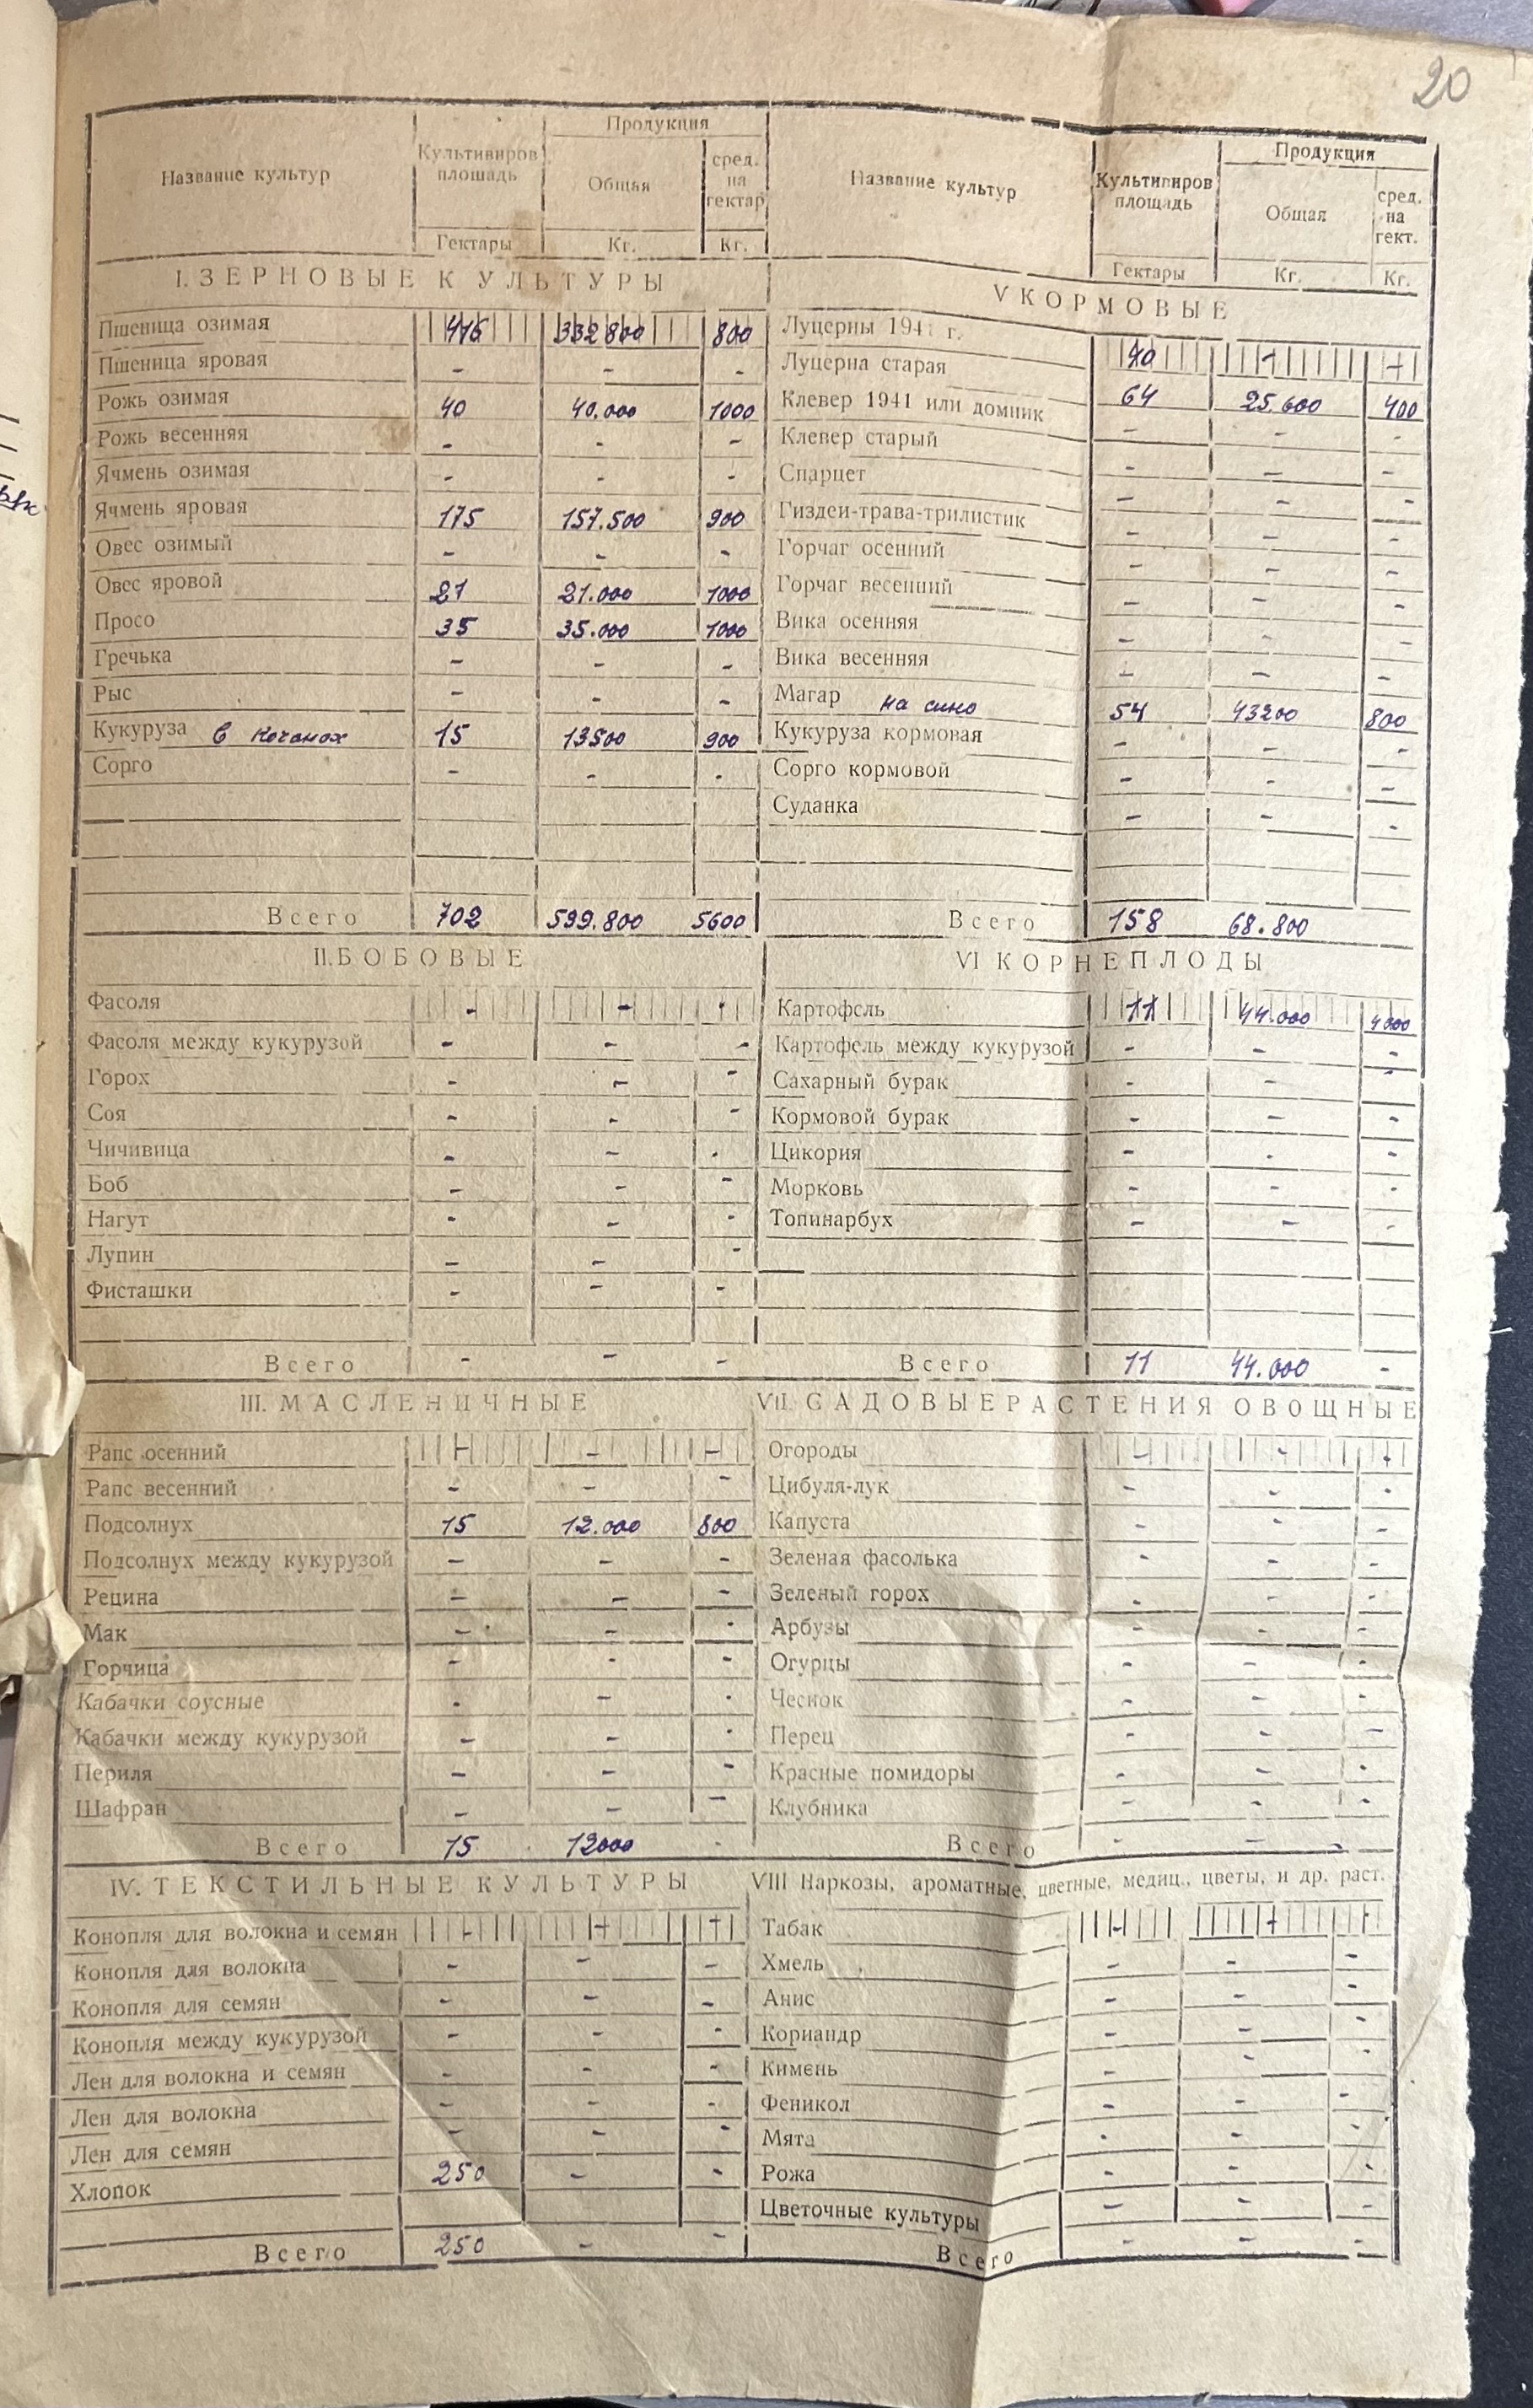 20
Название культур | Культивиров площадь | Продукция
Общая | сред. на гектар
Гектары | Кг. | Кг.
I. ЗЕРНОВЫЕ КУЛЬТУРЫ
Пшеница озимая 416 332800 800
Пшеница яровая - - -
Рожь озимая 40 40.000 1000
Рожь весенняя - - -
Ячмень озимая - - -
Ячмень яровая 175 157.500 900
Овес озимый - - -
Овес яровой 21 21.000 1000
Просо 35 35.000 1000
Гречька - - -
Рыс - - -
Кукуруза в кочанах 15 13500 900
Сорго - - -
Всего 702 599.800 5600
II. БОБОВЫЕ
Фасоля - - -
Фасоля между кукурузой - - -
Горох - - -
Соя - - -
Чичивица - - -
Боб - - -
Нагут - - -
Лупин - - -
Фисташки - - -
Всего - - -
III. МАСЛЕНИЧНЫЕ
Рапс осенний - - -
Рапс весенний - - -
Подсолнух 15 12.000 800
Подсолнух между кукурузой - - -
Рецина - - -
Мак - - -
Горчица - - -
Кабачки соусные - - -
Кабачки между кукурузой - - -
Периля - - -
Шафран - - -
Всего 15 12000 -
IV. ТЕКСТИЛЬНЫЕ КУЛЬТУРЫ
Конопля для волокна и семян - - -
Конопля для волокна - - -
Конопля для семян - - -
Конопля между кукурузой - - -
Лен для волокна и семян - - -
Лен для волокна - - -
Лен для семян - - -
Хлопок 250 - -
Всего 250 - -
Название культур | Культивиров площадь | Продукция
Общая | сред. на гект.
Гектары | Кг. | Кг.
V КОРМОВЫЕ
Луцерны 1941 г. 40 - -
Луцерна старая 64 25.600 400
Клевер 1941 или домник - - -
Клевер старый - - -
Спарцет - - -
Гиздеи-трава-трилистик - - -
Горчаг осенний - - -
Горчаг весенний - - -
Вика осенняя - - -
Вика весенняя - - -
Магар на сино 54 43200 800
Кукуруза кормовая - - -
Сорго кормовой - - -
Суданка - - -
Всего 158 68.800
VI КОРНЕПЛОДЫ
Картофель 11 44.000 4000
Картофель между кукурузой - - -
Сахарный бурак - - -
Кормовой бурак - - -
Цикория - - -
Морковь - - -
Топинарбух - - -
Всего 11 44.000 -
VII. САДОВЫЕ РАСТЕНИЯ ОВОЩНЫЕ
Огороды - - -
Цибуля-лук - - -
Капуста - - -
Зеленая фасолька - - -
Зеленый горох - - -
Арбузы - - -
Огурцы - - -
Чеснок - - -
Перец - - -
Красные помидоры - - -
Клубника - - -
Всего - - -
VIII Наркозы, ароматные, цветные, медиц., цветы, и др. раст.
Табак - - -
Хмель - - -
Анис - - -
Кориандр - - -
Кимень - - -
Феникол - - -
Мята - - -
Рожа - - -
Цветочные культуры - - -
Всего - - -